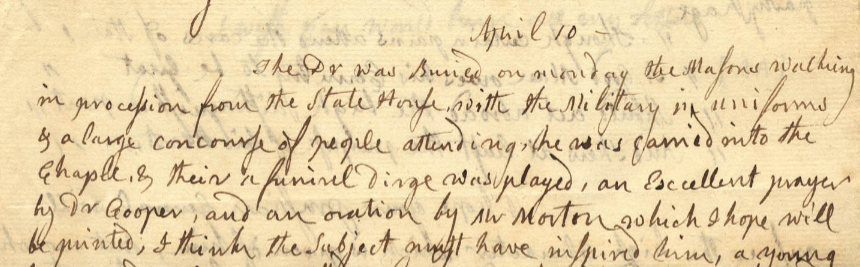 April 10 —
The Dr was Buried on monday the Masons walking
in procession from the State House, with the Military in uniforms
& a large concourse of people attending, he was carried into the
Chaple, & their a funirel Dirge was played, an Excellent prayer
by Dr Cooper, and an oration by Mr Morton which I hope will
be printed, I think the Subject must have inspired him, a young